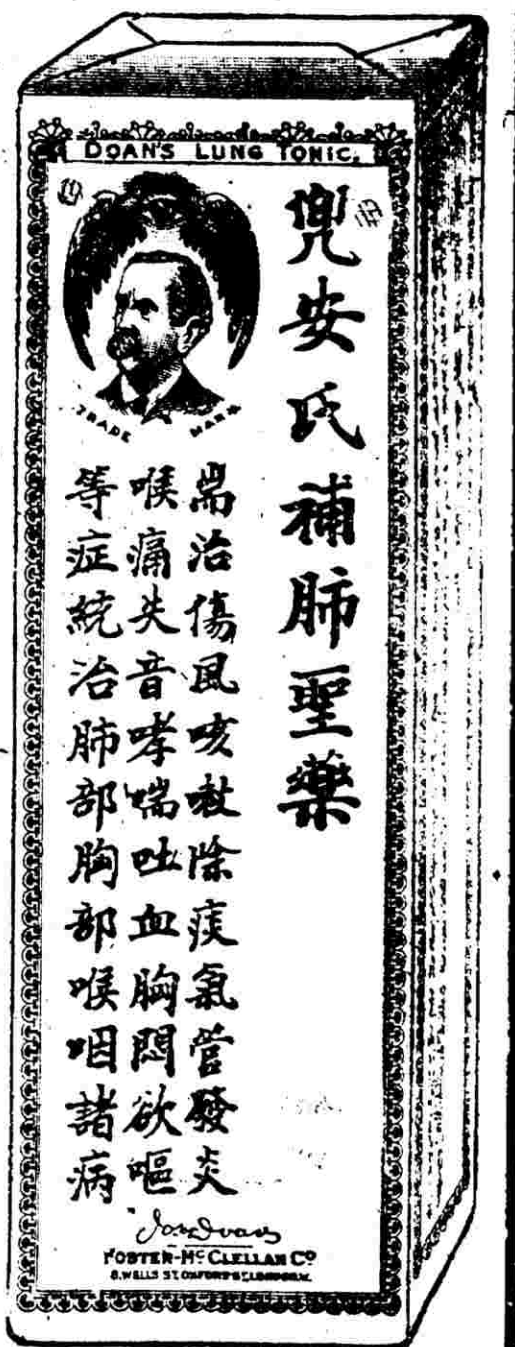 DOAN'S LUNG TONIC.
兜安氏補肺聖藥
TRADE MARK
耑治傷風咳嗽除痰氣管發炎
喉痛失音哮喘吐血胸悶欲嘔
等症統治肺部胸部喉咽諸病
FOSTER-McCLELLAN Co
8, WELLS ST. OXFORD ST. LONDON.W.